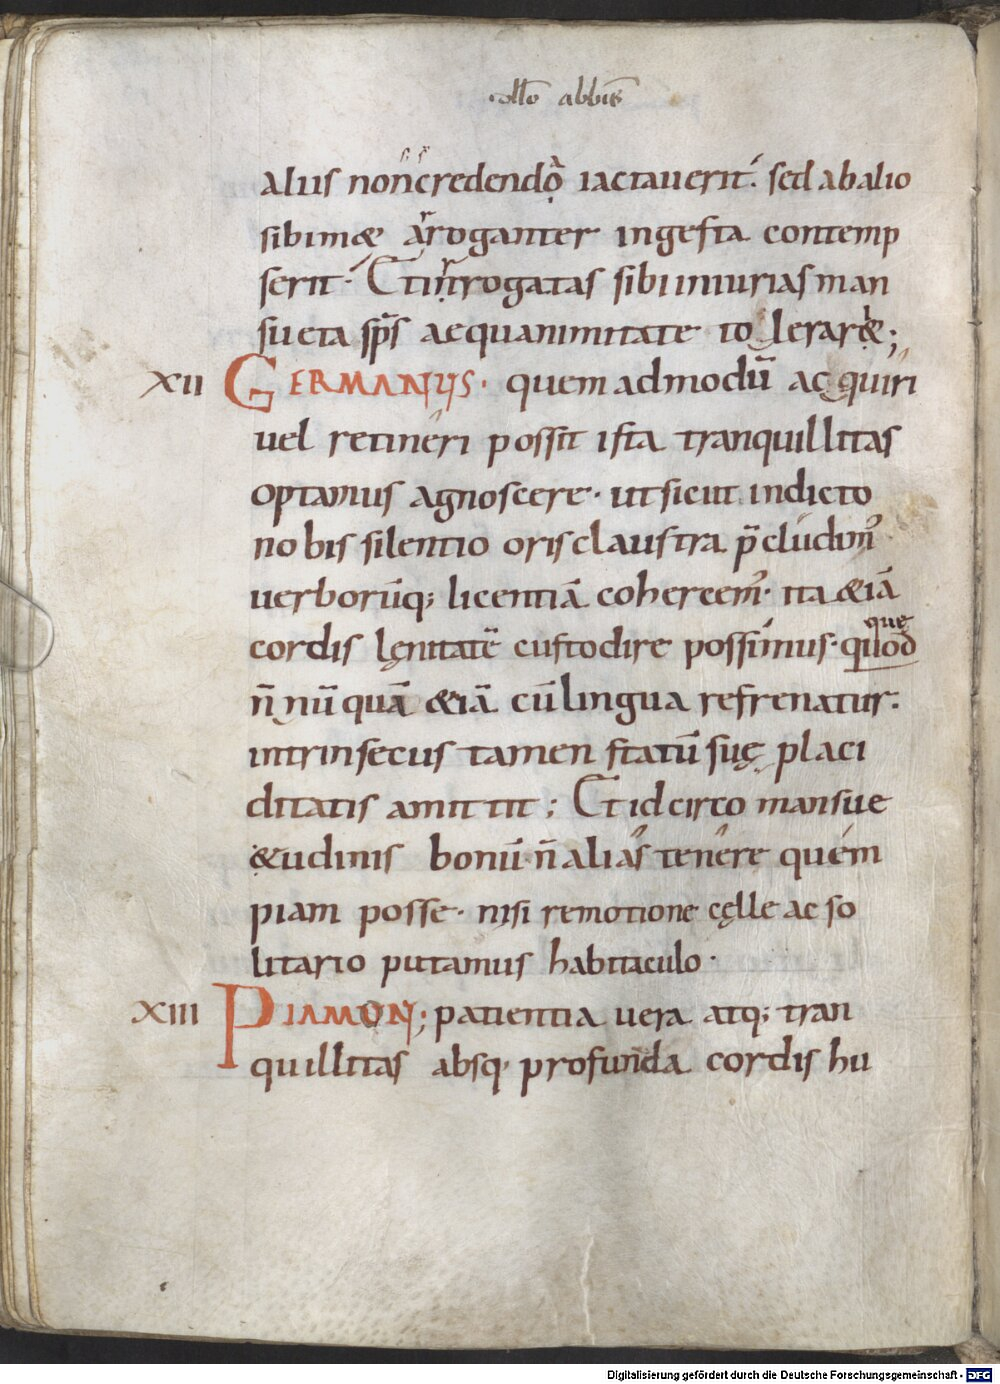 ·ollo abbis
aliis non credendo iactauerit. sed ab alio
sibimet arroganter ingesta contemp
serit· Et inrogatas sibi iniurias man
sueta sp̅s aequanimitate tolerar&;
XII GERMANUS· quemadmodu̅ acquiri
uel retineri possit ista tranquillitas
optamus agnoscere· ut sicut indicto
nobis silentio oris claustra p̅cludim᾿
uerboru̅q; licentia̅ cohercem᾿· ita &ia̅
cordis lęnitate̅ custodire possimus· quod
quę
n̅ nu̅qua̅ &ia̅ cu̅ lingua refrenatur·
intrinsecus tamen statu̅ suę placi
ditatis amittit; Et idcirco mansue
&udinis bonu̅ n̅ alias tenere quem
piam posse· nisi remotione cęlle ac so
litario putamus habitaculo·
XIII PIAMON; patientia uera atq; tran
quillitas absq· profunda cordis hu
Digitalisierung gefördert durch die Deutsche Forschungsgemeinschaft - DFG